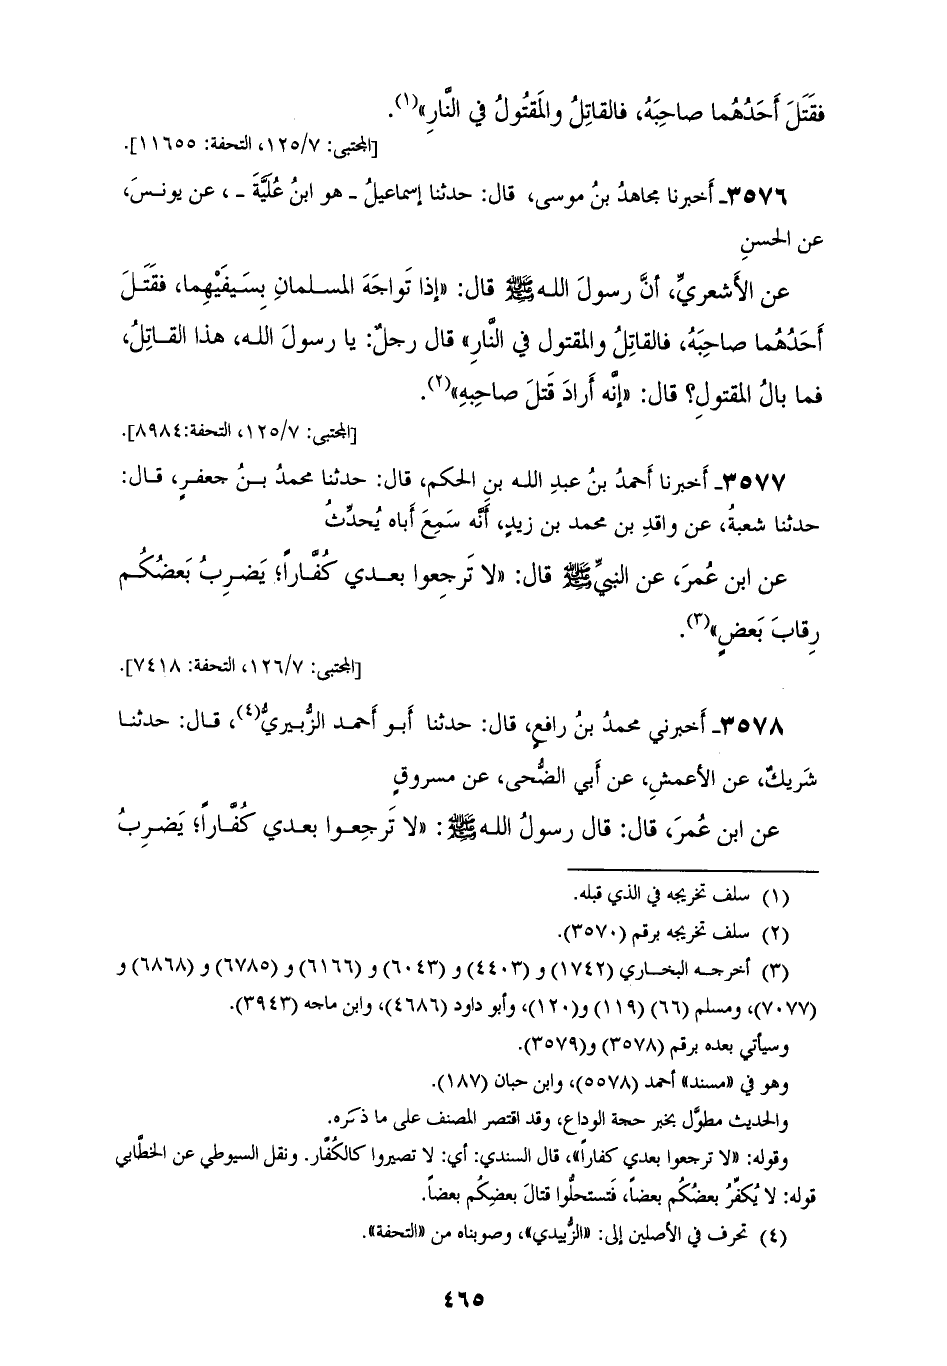 فقَتَلَ أَحَدُهُما صاحِبَهُ، فالقاتِلُ والمَقتُولُ في النَّارِ»(١).
[المجتبى: ١٢٥/٧، التحفة: ١١٦٥٥].
٣٥٧٦ـ أَخبرنا مجاهدُ بنُ موسى، قال: حدثنا إسماعيلُ ـ هو ابنُ عُلَيَّةَ ـ، عن يونسَ،
عن الحسنِ
عن الأَشعريِّ، أنَّ رسولَ اللهﷺ قال: «إذا تَواجَهَ المسلمانِ بِسَيفَيْهِما، فقَتَلَ
أَحَدُهُما صاحِبَهُ، فالقاتِلُ والمقتول في النَّارِ» قال رجلٌ: يا رسولَ الله، هذا القاتِلُ،
فما بالُ المقتولِ؟ قال: «إنَّه أَرادَ قَتلَ صاحِبِهِ»(٢).
[المجتبى: ١٢٥/٧، التحفة:٨٩٨٤].
٣٥٧٧ـ أَخبرنا أَحمدُ بنُ عبدِ الله بنِ الحكم، قال: حدثنا محمدُ بنُ جعفرٍ، قال:
حدثنا شعبةُ، عن واقدِ بن محمد بن زيدٍ، أَنَّه سَمِعَ أَباه يُحدِّثُ
عن ابن عُمرَ، عن النبيِّﷺ قال: «لا تَرجِعوا بعدي كُفَّاراً؛ يَضرِبُ بَعضُكُم
رِقابَ بَعضٍ»(٣).
[المجتبى: ١٢٦/٧، التحفة: ٧٤١٨].
٣٥٧٨ـ أَخبرني محمدُ بنُ رافعٍ، قال: حدثنا أَبو أَحمد الزُّبيريُّ(٤)، قال: حدثنا
شَريكٌ، عن الأعمشِ، عن أَبي الضُّحى، عن مسروقٍ
عن ابن عُمرَ، قال: قال رسولُ اللهﷺ: «لا تَرجِعوا بعدي كُفَّاراً؛ يَضرِبُ
(١) سلف تخريجه في الذي قبله.
(٢) سلف تخريجه برقم (٣٥٧٠).
(٣) أخرجه البخاري (١٧٤٢) و (٤٤٠٣) و (٦٠٤٣) و (٦١٦٦) و (٦٧٨٥) و (٦٨٦٨) و
(٧٠٧٧)، ومسلم (٦٦) (١١٩) و(١٢٠)، وأبو داود (٤٦٨٦)، وابن ماجه (٣٩٤٣).
وسيأتي بعده برقم (٣٥٧٨) و(٣٥٧٩).
وهو في «مسند» أحمد (٥٥٧٨)، وابن حبان (١٨٧).
والحديث مطوَّل بخبر حجة الوداع، وقد اقتصر المصنف على ما ذكره.
وقوله: «لا ترجعوا بعدي كفاراً»، قال السندي: أي: لا تصيروا كالكُفَّار. ونقل السيوطي عن الخطَّابي
قوله: لا يُكفِّرُ بعضُكُم بعضاً، فَتستحلُّوا قتالَ بعضِكُم بعضاً.
(٤) تحرف في الأصلين إلى: «الزُّبيدي»، وصوبناه من «التحفة».
٤٦٥